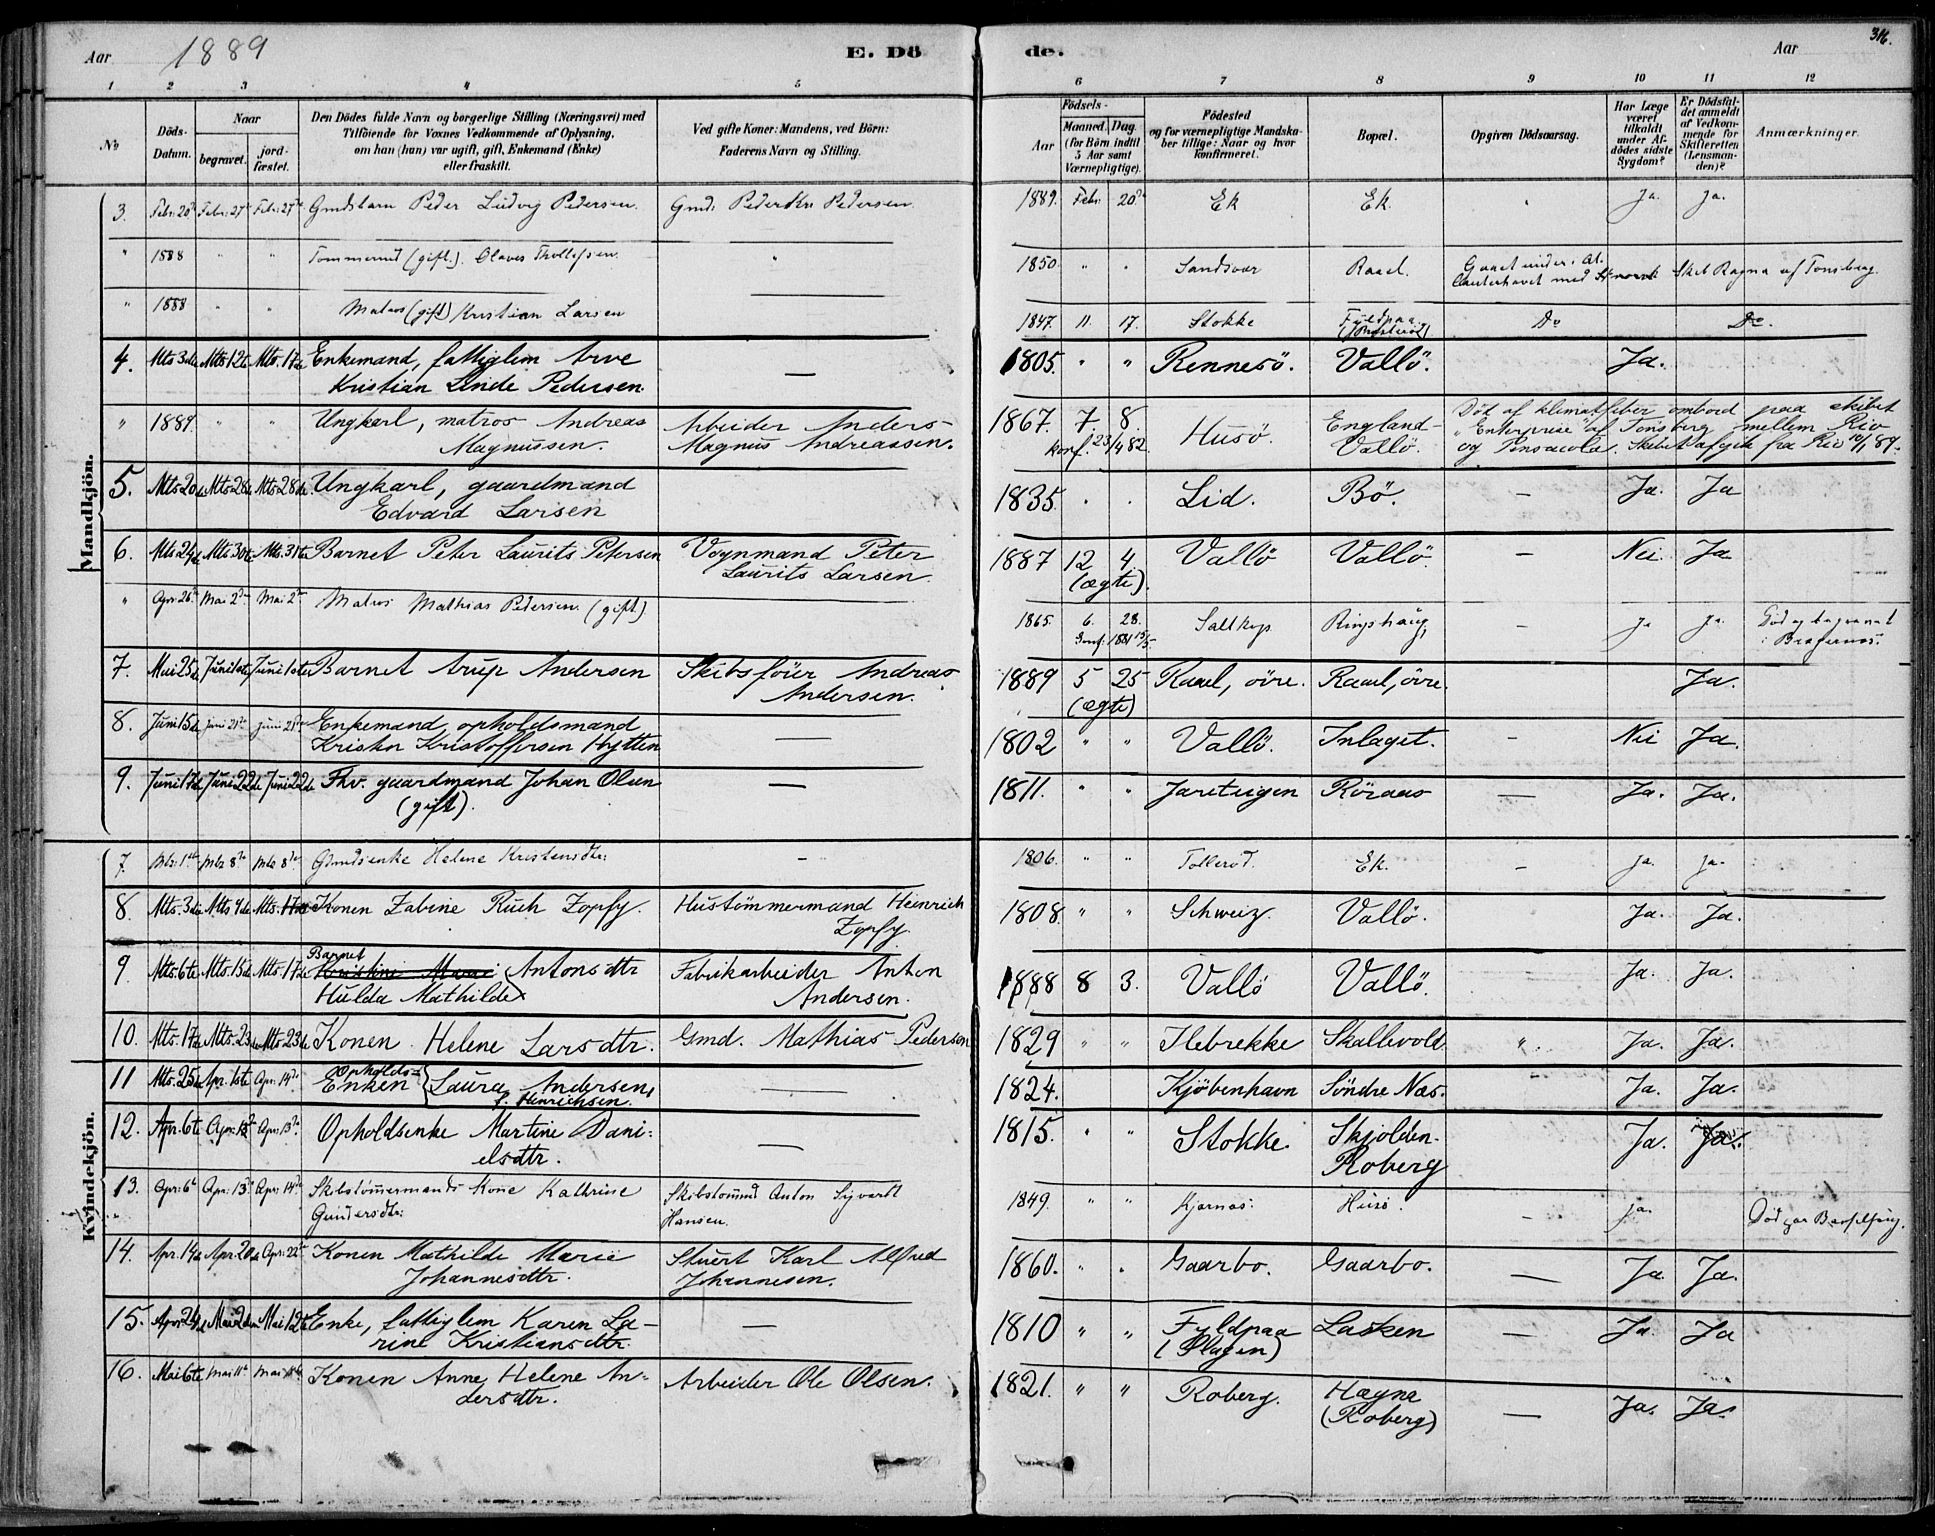 Aar 1889 E. Döde. Aar 316.
1 2 3 4 5 6 7 8 9 10 11 12
No Döds-Datum. Naar begravet. jord-fæstet. Den Dödes fulde Navn og borgerlige Stilling (Næringsvei) med Tilföiende for Voxnes Vedkommende af Oplysning, om han (hun) var ugift, gift, Enkemand (Enke) eller fraskilt. Ved gifte Koner: Mandens, ved Börn: Faderens Navn og Stilling. Födsels- Aar Maaned. Dag. (for Börn indtil 5 Aar samt Værnepligtige). Födested og for værnepligtige Mandska-ber tillige: Naar og hvor konfirmeret. Bopæl. Opgiven Dödsaarsag. Har Læge været tilkaldt under Af-dödes sidste Sygdom? Er Dödsfal-det anmeldt af Vedkom-mende for Skifteretten (Lensman-den)? Anmærkninger.
Mandkjön.
3. Febr: 20de Febr: 27de Febr: 27de Gmdsbarn Peder Ludvig Pedersen. Gmd: Peder Kr. Pedersen 1889. Febr: 20de Ek Ek. Ja. Ja.
" 1888 " " Tømmermd (gift.). Olaves Thollefsen. 1850. " " Sandsvær Raael. Gaaet under i At-lanterhavet med Skonnert Skib Ragna af Tønsberg.
" 1888 " " Matros (gift) Kristian Larsen 1847. 11. 17. Stokke Fyldpaa Do Do.
4. Mts 3de Mts 12te Mts. 17de Enkemand, fattiglem Arve
Kristian Linde Pedersen. — 1805. " " Rennesö. Vallö. Ja.
" 1889. " " Ungkarl, matros Andreas
Magnussen. Arbeider Anders
Magnus Andreassen. 1867. 7. 8. konf. 23/4 82. Husö. England-Vallö. Död af klimatfeber ombord paa skibet
"Enterprise" af Tonsberg mellem Rio
og Pensacola. Skibet afgik fra Rio 10/1 89.
5. Mts 20de Mts 28de Mts 28de Ungkarl, gaardmand
Edvard Larsen 1835. " " Lid. Bö. — Ja. Ja
6. Mts 24de Mts 30te Mts. 31te Barnet Peter Laurits Petersen Vognmand Peter
Laurits Larsen. 1887 12 4. (ægte). Vallö Vallö. — Nei. Ja
" Apr: 26de Mai 2de Mai 2de Matros Mathias Pedersen (gift) 1865. 6. 28. Saltkop Ringshaug, — ja ja. Död og begravet
i Bragernæs.
7. Mai 25de Juni 1ste Juni 1ste Barnet Arup Andersen Skibsförer Andreas
Andersen. 1889 5 25 (ægte) Raael, övre. Raael, övre. Ja.
8. Juni 15de Juni 21de Juni 21de Enkemand opholdsmand
Kristen Kristoffersen Hytten — 1802 " " Vallö. Inlaget. — Nei Ja.
9. Juni 17de Juni 22de Juni 22de Fhv. gaardmand Johan Olsen
(gift). — 1811. " " Jaretuigen Röraas — Ja. Ja.
Kvindekjön.
7. Mts: 1ste Mts 8de Mts 8de Gmdsenke Helene Kristensdtr: — 1806. " " Tollerød. Ek. — ja. ja.
8. Mts. 3die Mts 9de Mts. 17de Konen Zabine Ruch Zopfy. Hustömmermand Heinrich
Zopfy. 1808. " " Schweiz. Vallö. Ja. Ja.
9 Mts. 6te Mts. 15de Mts. 17de Barnet
Kristine Marie Antonsdtr
Hulda Mathilde Fabrikarbeider Anton
Andersen. 1888 8 3. Vallö Vallö. Ja. Ja.
10. Mts. 17de Mts. 23de Mts 23de Konen Helene Larsdtr. Gmd. Mathias Pedersen 1829 " " Ilebrekke Skallevold " Ja. Ja.
11 Mts. 25de Apr. 1ste Apr: 14de Opholds-
Enken Laura Andersen,
f. Henrichsen. — 1824. Kjöbenhavn Söndre Næs. Ja. Ja.
12. Apr. 6te Apr: 13de Apr: 13de Opholdsenke Martine Dani-
elsdtr. — 1815. " " Stokke. Skjolden-
Roberg Ja. Ja.
13. Apr: 6te Apr: 13de Apr: 14de Skibstømmermands Kone Kathrine
Gundersdtr: Skibstømmd Anton Syvertt
Hansen. 1849. " " Kjærnæs: Husø. — ja. Död paa Barselseng.
14. Apr. 14de Apr. 20de Apr: 22de Konen Mathilde Marie
Johannesdtr. Stuert Karl Alfred
Johannesen. 1860. " " Gaarbo. Gaarbo. — Ja. Ja.
15. Apr 24de Mai 2den Mai 12te Enke, fattiglem Karen La-
rine Kristiansdtr. — 1810 " " Fyldpaa
(Slagen) Lasken — Ja. Ja
16. Mai 6te Mai 11te Mai 11te Konen Anne Helene An-
dersdtr. Arbeider Ole Olsen. 1821. " " Roberg. Hagna
(Roberg) — Ja. Ja.